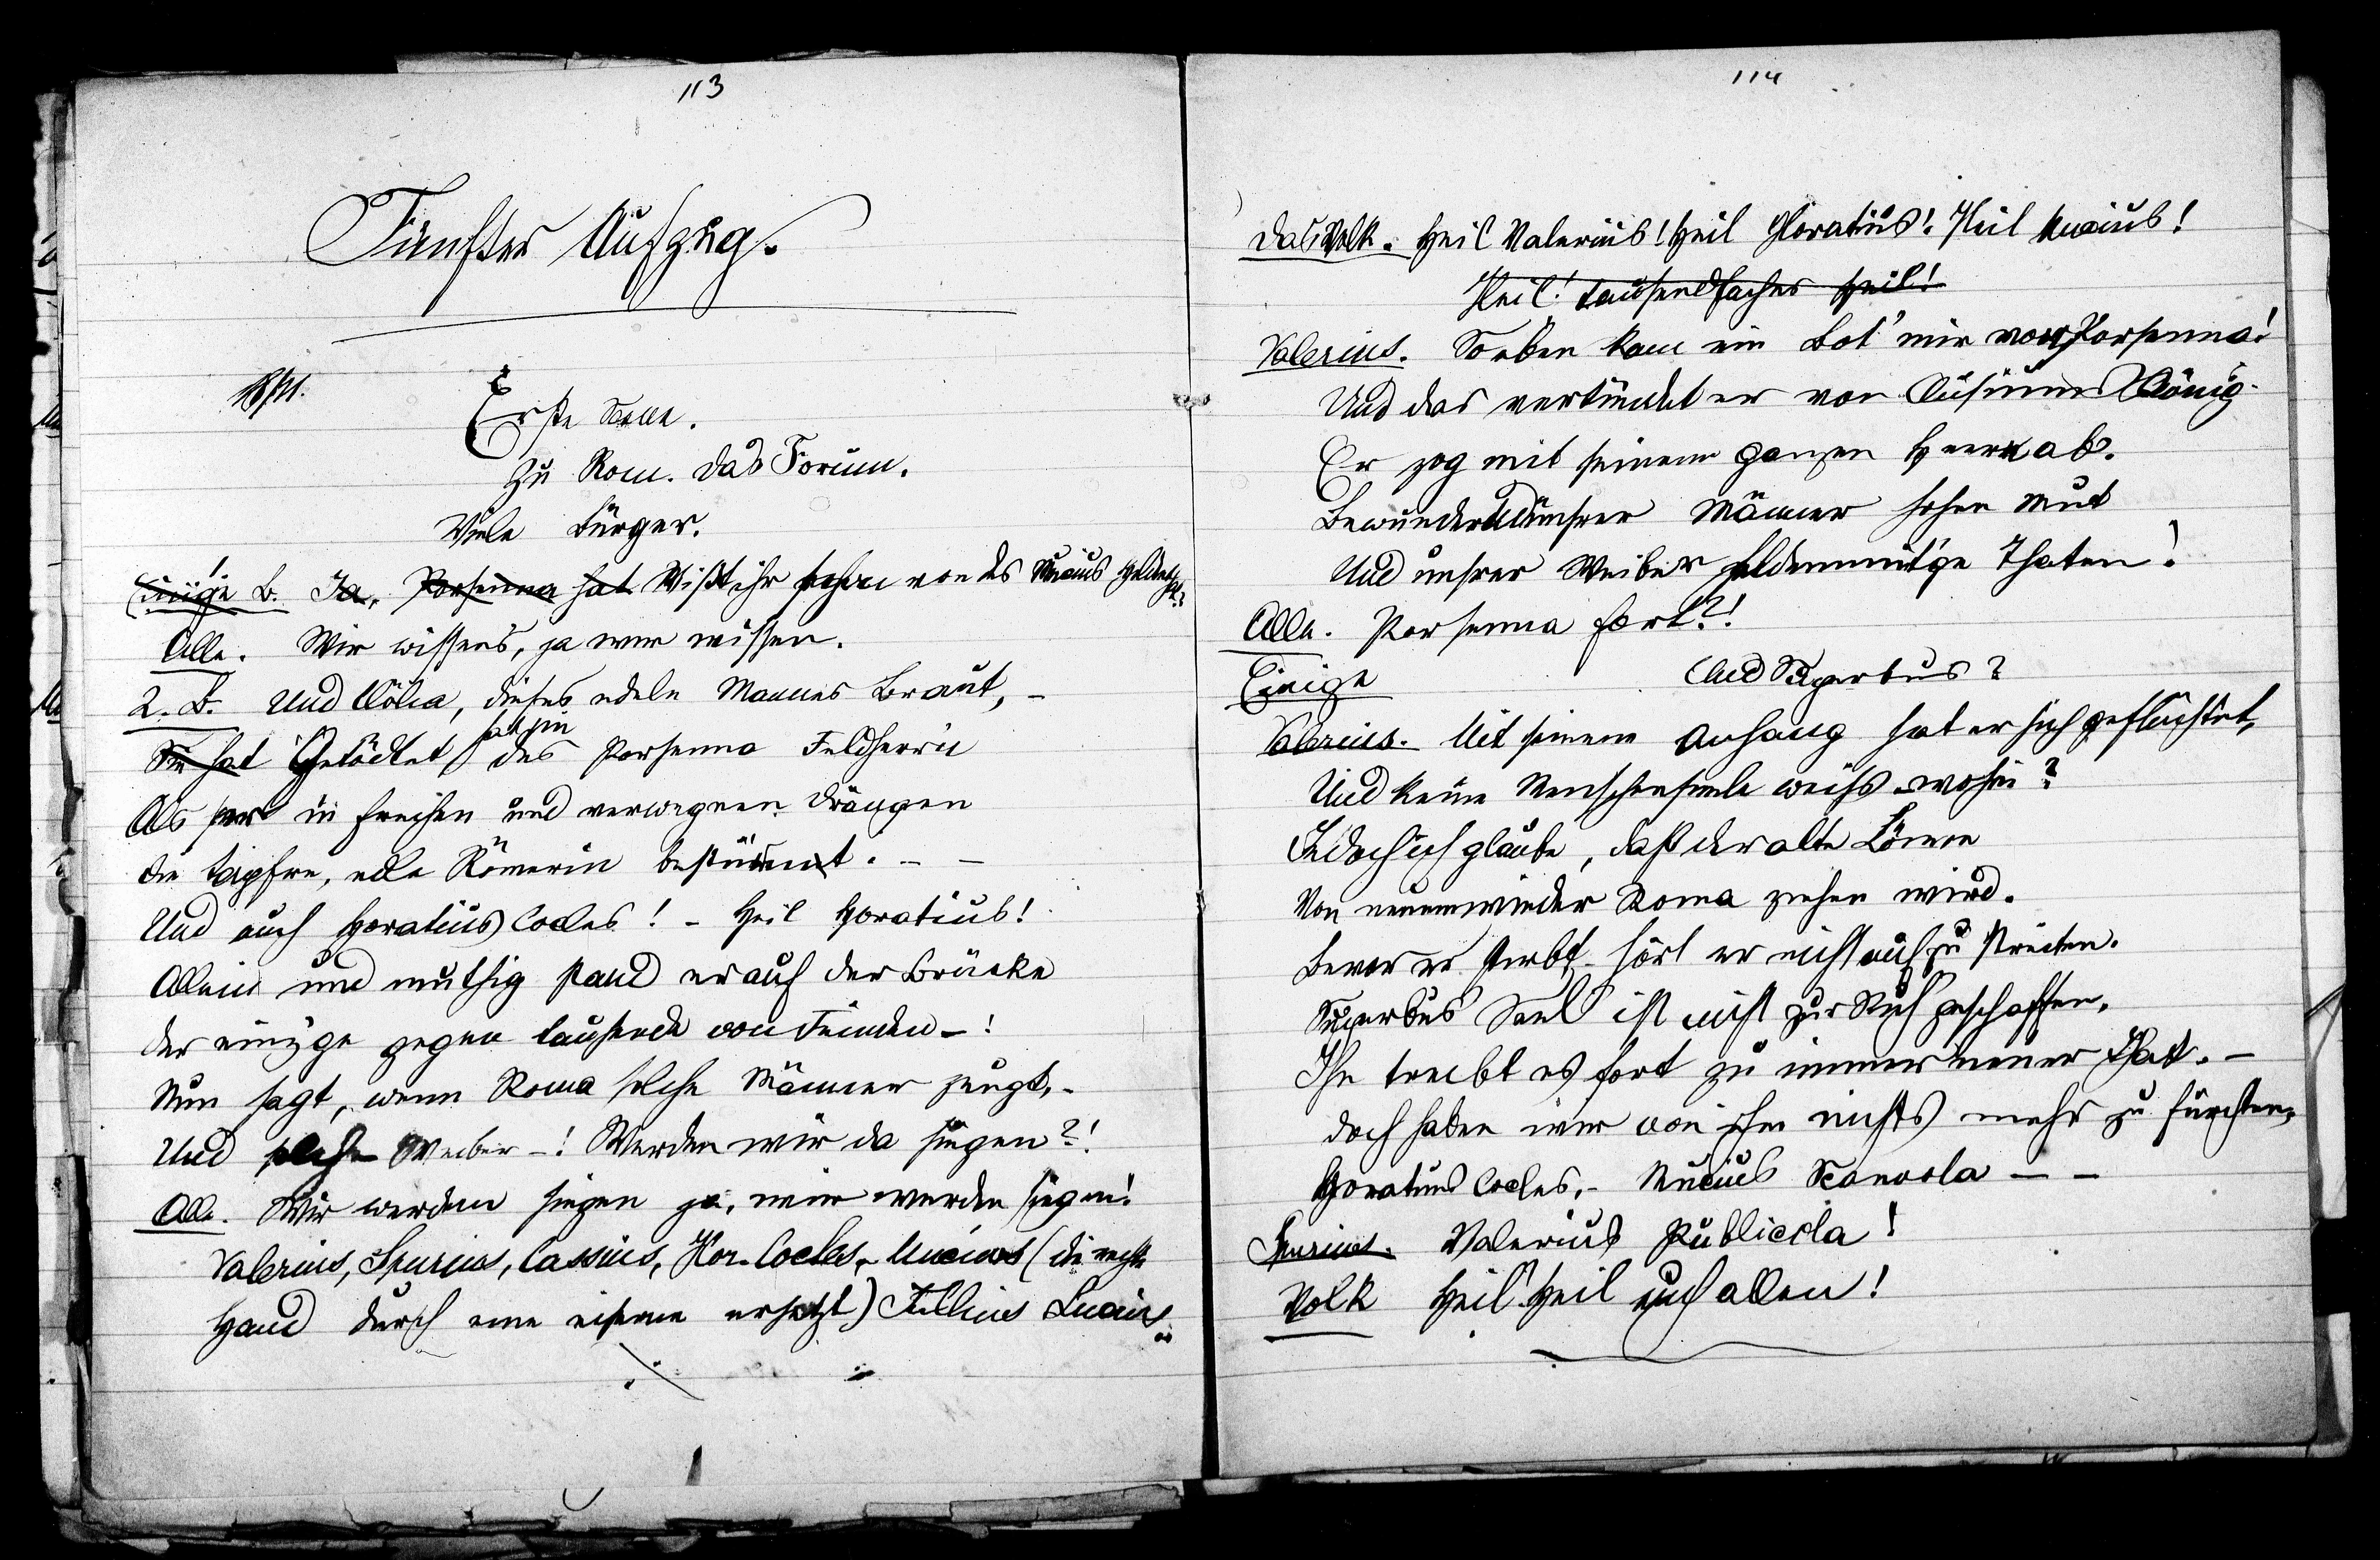 113
Fünfter Aufzug.
Erste Scene.
Zu Rom. Das Forum.
Viele Bürger.
Einige 1. B. Ja, Porsenna hat Wißt ihr schon von des Mucius Heldenth.?
Alle. Wir wissens, ja wir wissen.
2. B. Und Clölia, dieses edeln Mannes Braut, –
hat sie
Sie hat Getödtet des Porsenna Feldherrn
Als er in frechen und verwegnen Drängen
Die tapfre, edle Römerin bestürmt. – –
Und auch Horatius Cocles! – Heil Horatius!
Allein und muthig stand er auf der Brücke
Der einzge gegen tausende von Feinden –!
Nun sagt, wenn Roma solche Männer zeugt, –
Und solche Weiber –! Werden wir da siegen?!
Alle. Wir werden siegen ja, wir werden siegen!
Valerius, Spurius, Cassius, Hor. Cocles, Mucius (die rechte
Hand durch eine eiserne ersetzt) Tullius Lucius
114
Das Volk. Heil Valerius! Heil Horatius! Heil Mucius!
Heil! tausendfaches Heil!
Valerius. Soeben kam ein Bot' mir von Porsenna!
Und das verkündet er von Clusiums König
Er zog mit seinem ganzen Heere ab.
Bewundernd unsrer Männer hohen Mut
Und unsrer Weiber heldenmüt'ge Thaten!
Alle. Porsenna fort?!
Einige Und Superbus?
Valerius. Mit seinem Anhang hat er sich geflüchtet,
Und keine Menschenseele weiß – wohin?
Jedoch ich glaube, daß der alte Löwe
Von neuem wieder Roma ziehen wird.
Bevor er stirbt hört er nicht auf zu streiten.
Superbus Seel ist nicht zur Ruh geschaffen,
Ihn treibt es fort zu immer neuer That. –
Doch haben wir von ihm nichts mehr zu fürchten,
Horatius Cocles, – Mucius Scaevola – –
Spurius. Valerius Publicola!
Volk Heil! Heil euch allen!